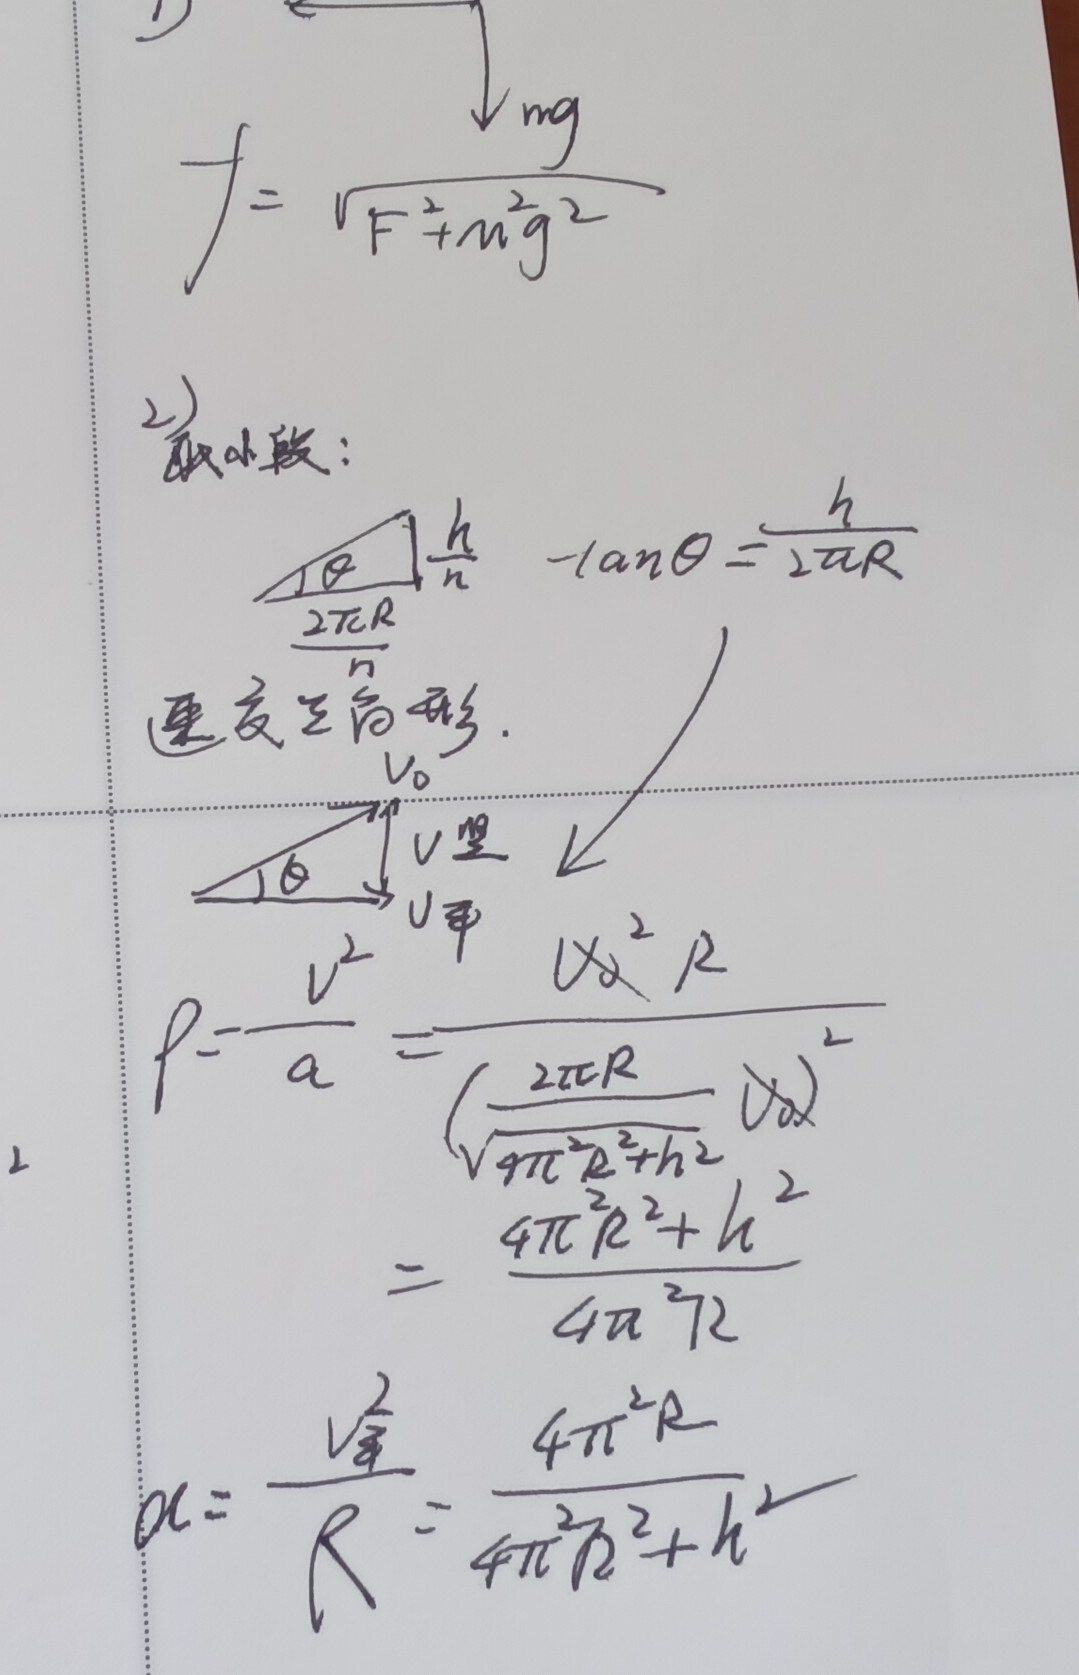 1)
mg
f = √(F²+m²g²)
2)
取小段:
θ h/n tanθ = h/2πR
2πR/n
速度三角形.
V₀
θ V竖
V平
ρ = V²/a = V₀² R / (2πR/√(4π²R²+h²) V₀)²
2
= (4π²R²+h²)/(4π²R)
a = V平²/R = 4π²R/(4π²R²+h²)